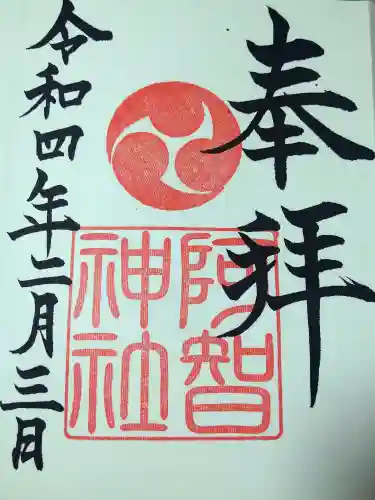 奉拝
阿智
神社
令和四年二月三日